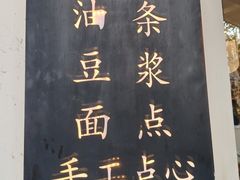 油条
豆浆
面点
手工点心